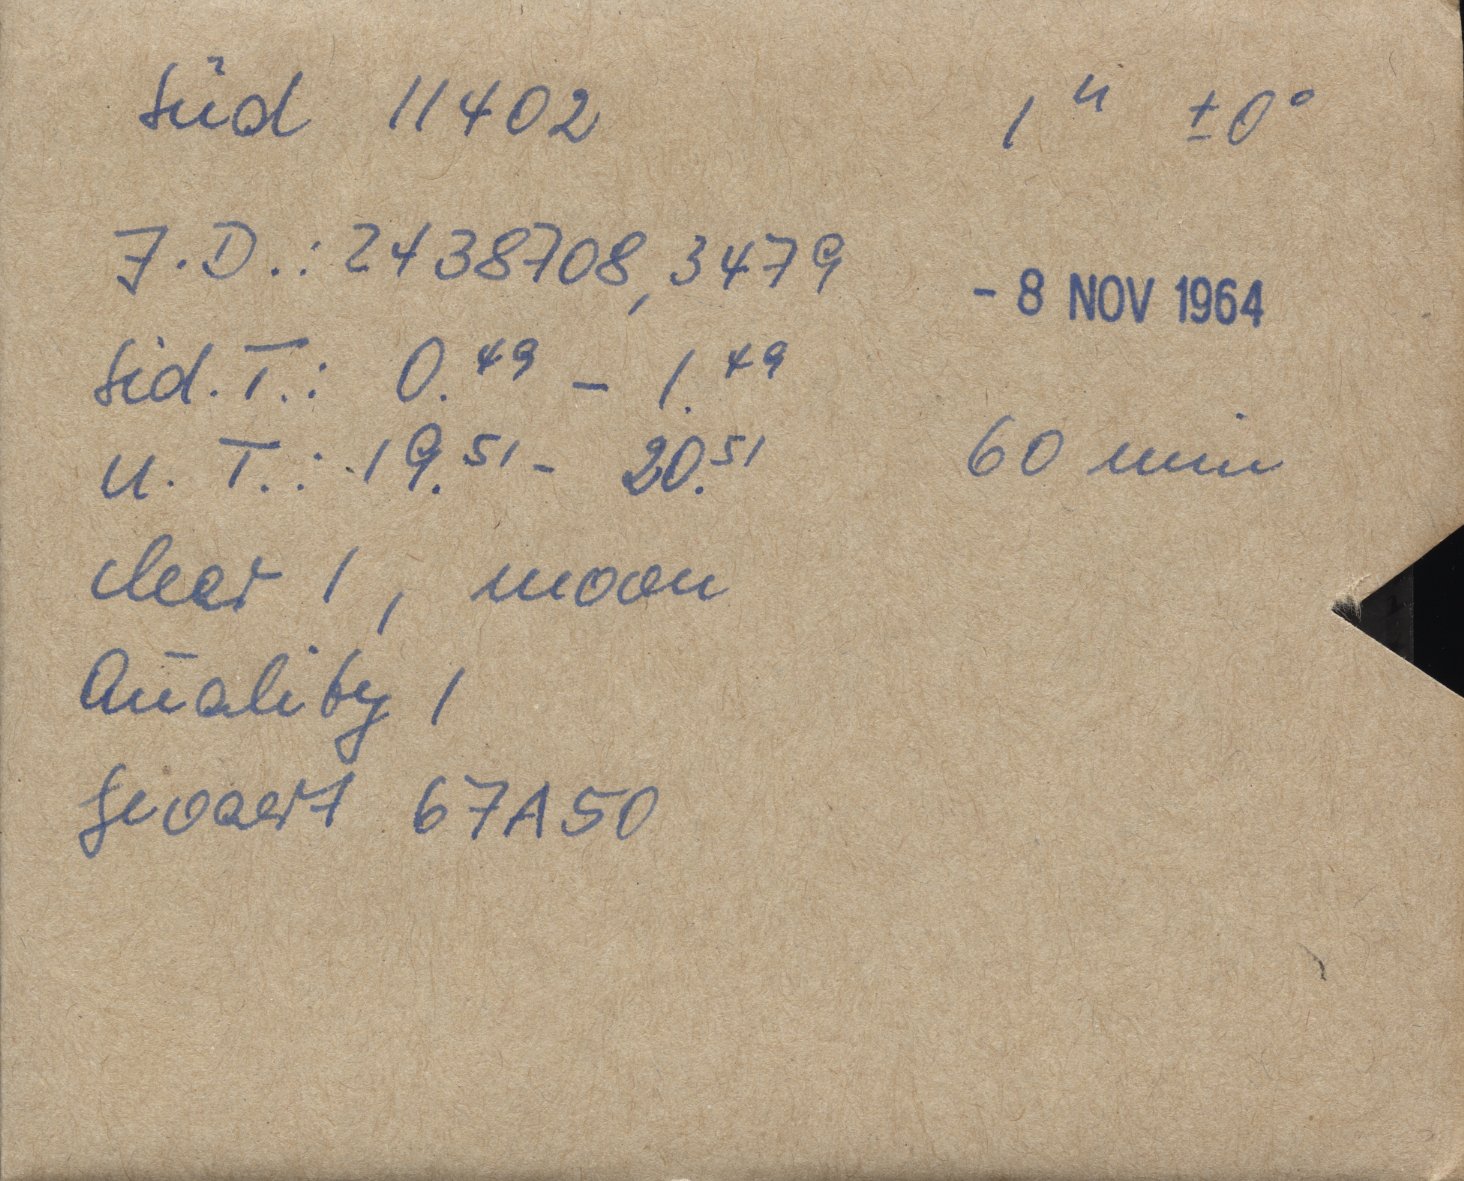 Süd 11402 1ʰ ±0°
J.D.: 2438708,3479
- 8 NOV 1964
Sid.T.: 0.⁴⁹ – 1.⁴⁹
U.T.: 19.⁵¹ – 20.⁵¹ 60 min
clear 1, moon
Quality 1
Gevaert 67A50